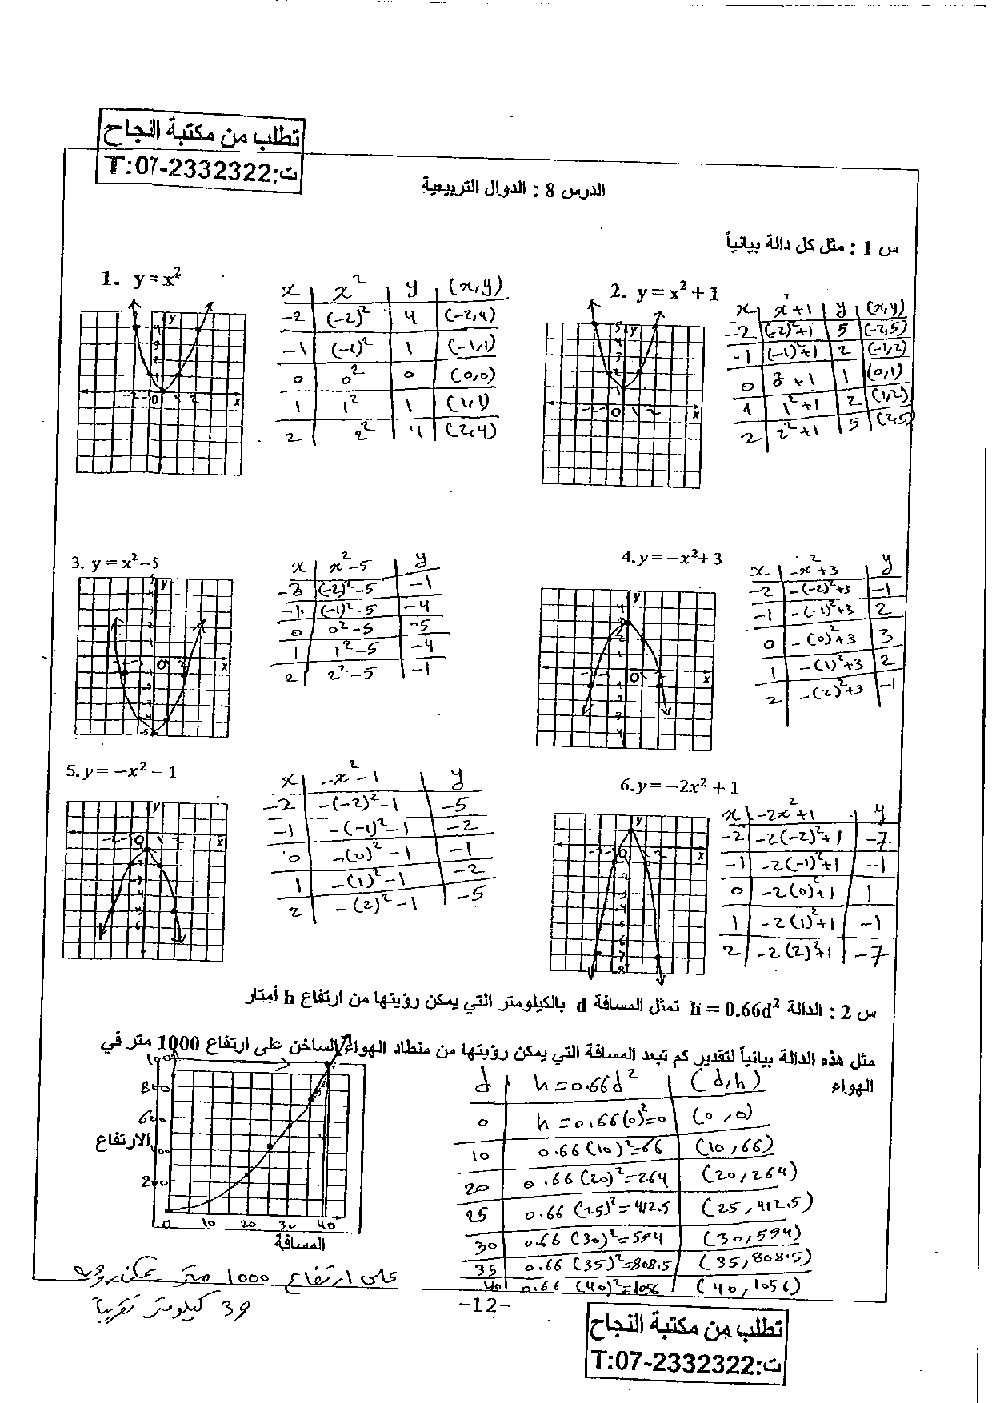 تطلب من مكتبة النجاح
ت:T:07-2332322
الدرس 8 : الدوال التربيعية
س 1 : مثل كل دالة بيانياً
1. y = x²
x | x² | y | (x,y)
-2 | (-2)² | 4 | (-2,4)
-1 | (-1)² | 1 | (-1,1)
0 | 0² | 0 | (0,0)
1 | 1² | 1 | (1,1)
2 | 2² | 4 | (2,4)
2. y = x² + 1
x | x²+1 | y | (x,y)
-2 | (-2)²+1 | 5 | (-2,5)
-1 | (-1)²+1 | 2 | (-1,2)
0 | +1 | 1 | (0,1)
1 | 1²+1 | 2 | (1,2)
2 | 2²+1 | 5 | (2,5)
3. y = x² – 5
x | x²-5 | y
(-2)²-5 | -1
-1 | (-1)²-5 | -4
0 | 0²-5 | -5
1 | 1²-5 | -4
2 | 2²-5 | -1
4. y = –x² + 3
x | -x²+3 | y
-2 | -(-2)²+3 | -1
-1 | -(-1)²+3 | 2
0 | -(0)²+3 | 3
1 | -(1)²+3 | 2
2 | -(2)²+3 | -1
5. y = –x² – 1
x | -x²-1 | y
-2 | -(-2)²-1 | -5
-1 | -(-1)²-1 | -2
0 | -(0)²-1 | -1
1 | -(1)²-1 | -2
2 | -(2)²-1 | -5
6. y = –2x² + 1
x | -2x²+1 | y
-2 | -2(-2)²+1 | -7
-1 | -2(-1)²+1 | -1
0 | -2(0)²+1 | 1
1 | -2(1)²+1 | -1
2 | -2(2)²+1 | -7
س 2 : الدالة h = 0.66d² تمثل المسافة d بالكيلومتر التي يمكن رؤيتها من ارتفاع h أمتار
مثل هذه الدالة بيانياً لتقدير كم تبعد المسافة التي يمكن رؤيتها من منطاد الهواء الساخن على ارتفاع 1000 متر في
الهواء
الارتفاع
200
0 10 20 30 40
المسافة
d | h=0.66d² | (d,h)
0 | h=0.66(0)²=0 | (0,0)
10 | 0.66(10)²=66 | (10,66)
20 | 0.66(20)²=264 | (20,264)
25 | 0.66(25)²=412.5 | (25,412.5)
30 | 0.66(30)²=594 | (30,594)
35 | 0.66(35)²=808.5 | (35,808.5)
40 | 0.66(40)²=1056 | (40,1056)
على ارتفاع 1000 متر يمكن رؤية
39 كيلومتر تقريباً
-12-
تطلب من مكتبة النجاح
ت:T:07-2332322